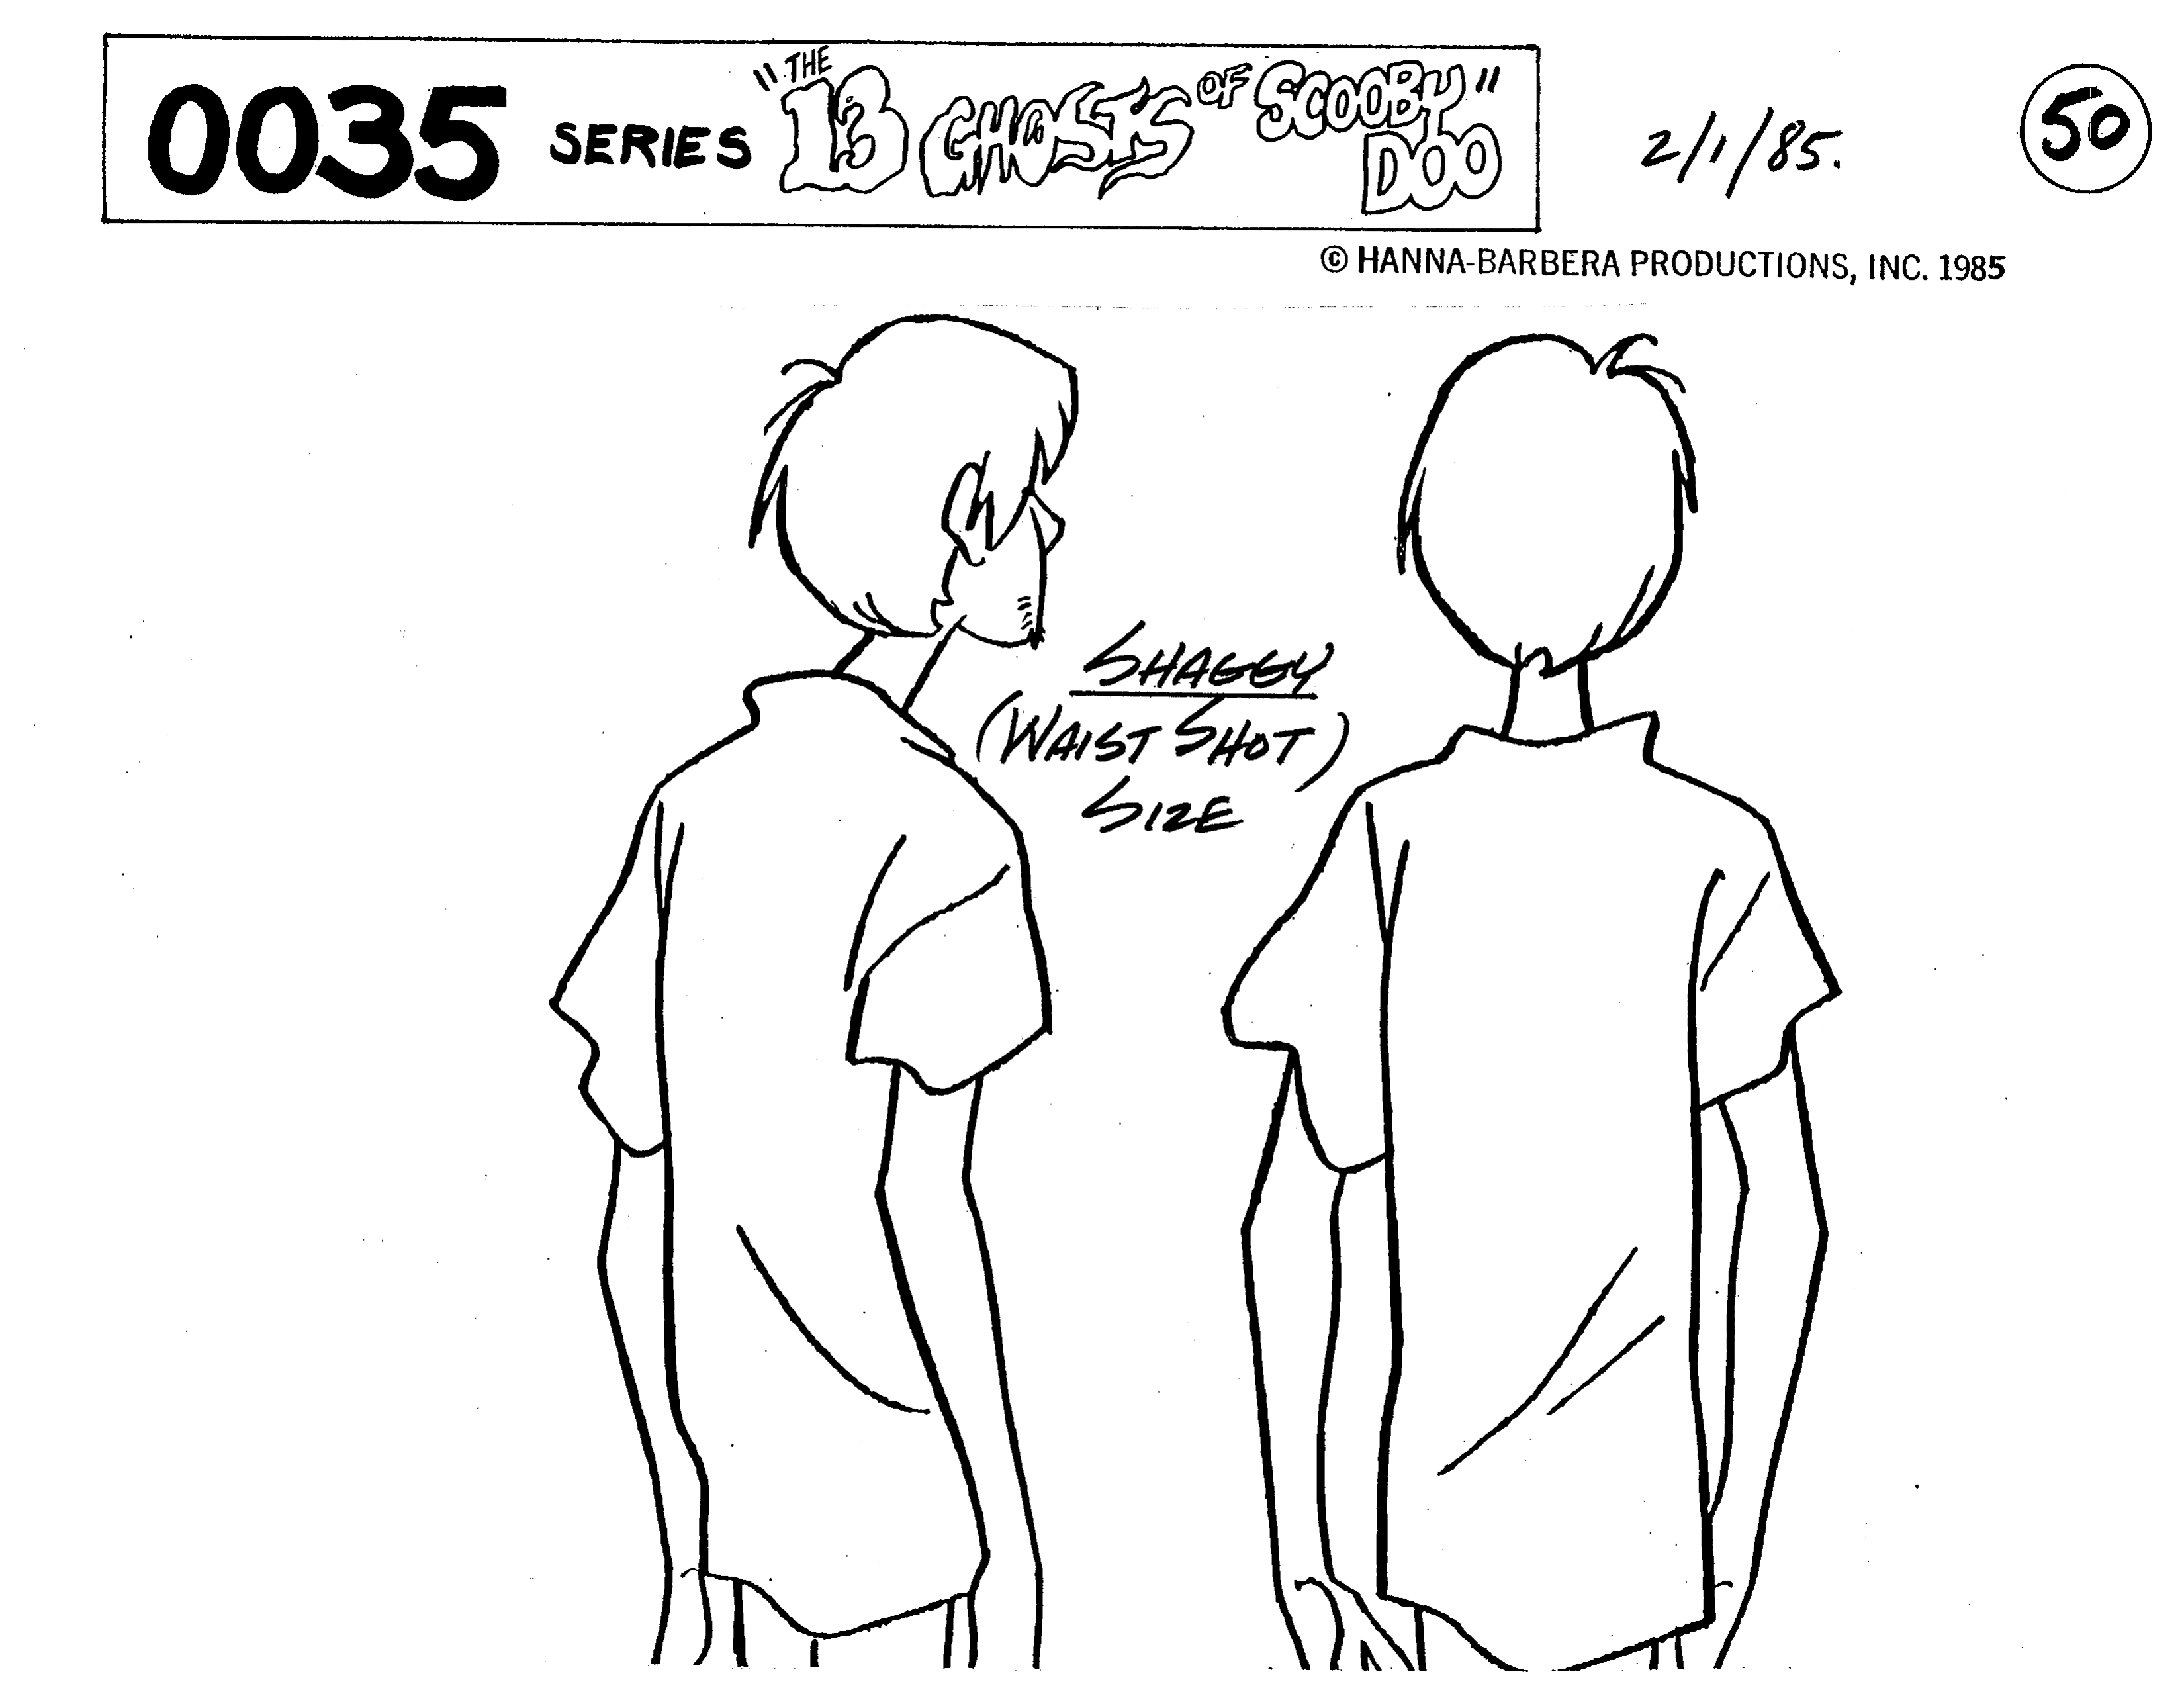 0035 SERIES "THE 13 GHOSTS OF SCOOBY DOO" 2/1/85. 50
© HANNA-BARBERA PRODUCTIONS, INC. 1985
SHAGGY
(WAIST SHOT)
SIZE